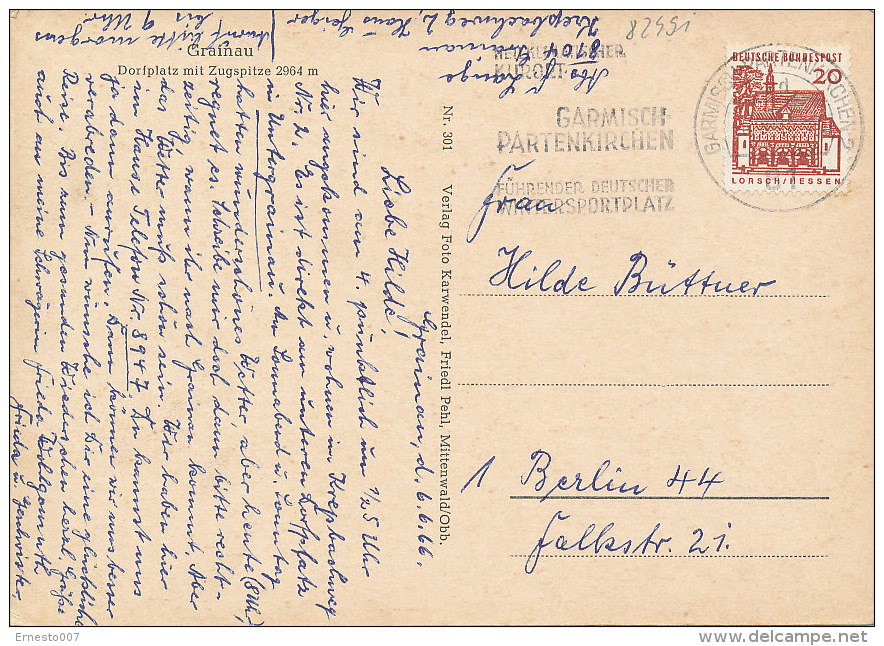 Grainau
Dorfplatz mit Zugspitze 2964 m
Nr. 301 Verlag Foto Karwendel, Friedl Pehl, Mittenwald/Obb.
Grainau, d. 6.6.66.
Liebe Hilde!
Wir sind am 4. pünktlich um 1/2 5 Uhr
hier angekommen u. wohnen im Krepbachweg
Nr. 2. Es ist direkt am unteren Dorfplatz
in Untergrainau. Am Sonnabend u. Sonntag
hatten wunderschönes Wetter, aber heute (8 Uhr)
regnet es. Schreibe mir doch dann bitte recht-
zeitig wann ihr nach Grainau kommt. Aber
das Wetter muß schön sein. Wir haben hier
im Hause Telefon Nr. 8947. Du kannst uns
ja dann anrufen. Dann können wir uns besser
verabreden. – Nun wünsche ich Dir eine glückliche
Reise. Bis zum gesunden Wiedersehen herzl. Grüße
auch an meine Schwägerin Frieda Wohlgemuth
Frieda u. Geschwister
Anruf bitte morgens
bis 9 Uhr.
Abs.
8104 Grainau
Krepbachweg 2, Haus Geiger
82451
HEILKLIMATISCHER
KURORT
GARMISCH-
PARTENKIRCHEN
FÜHRENDER DEUTSCHER
WINTERSPORTPLATZ
GARMISCH-PARTENKIRCHEN 2
d
DEUTSCHE BUNDESPOST
20
LORSCH/HESSEN
Frau
Hilde Büttner
1 Berlin 44
Falkstr. 21.
Ernesto007
delcampe.net